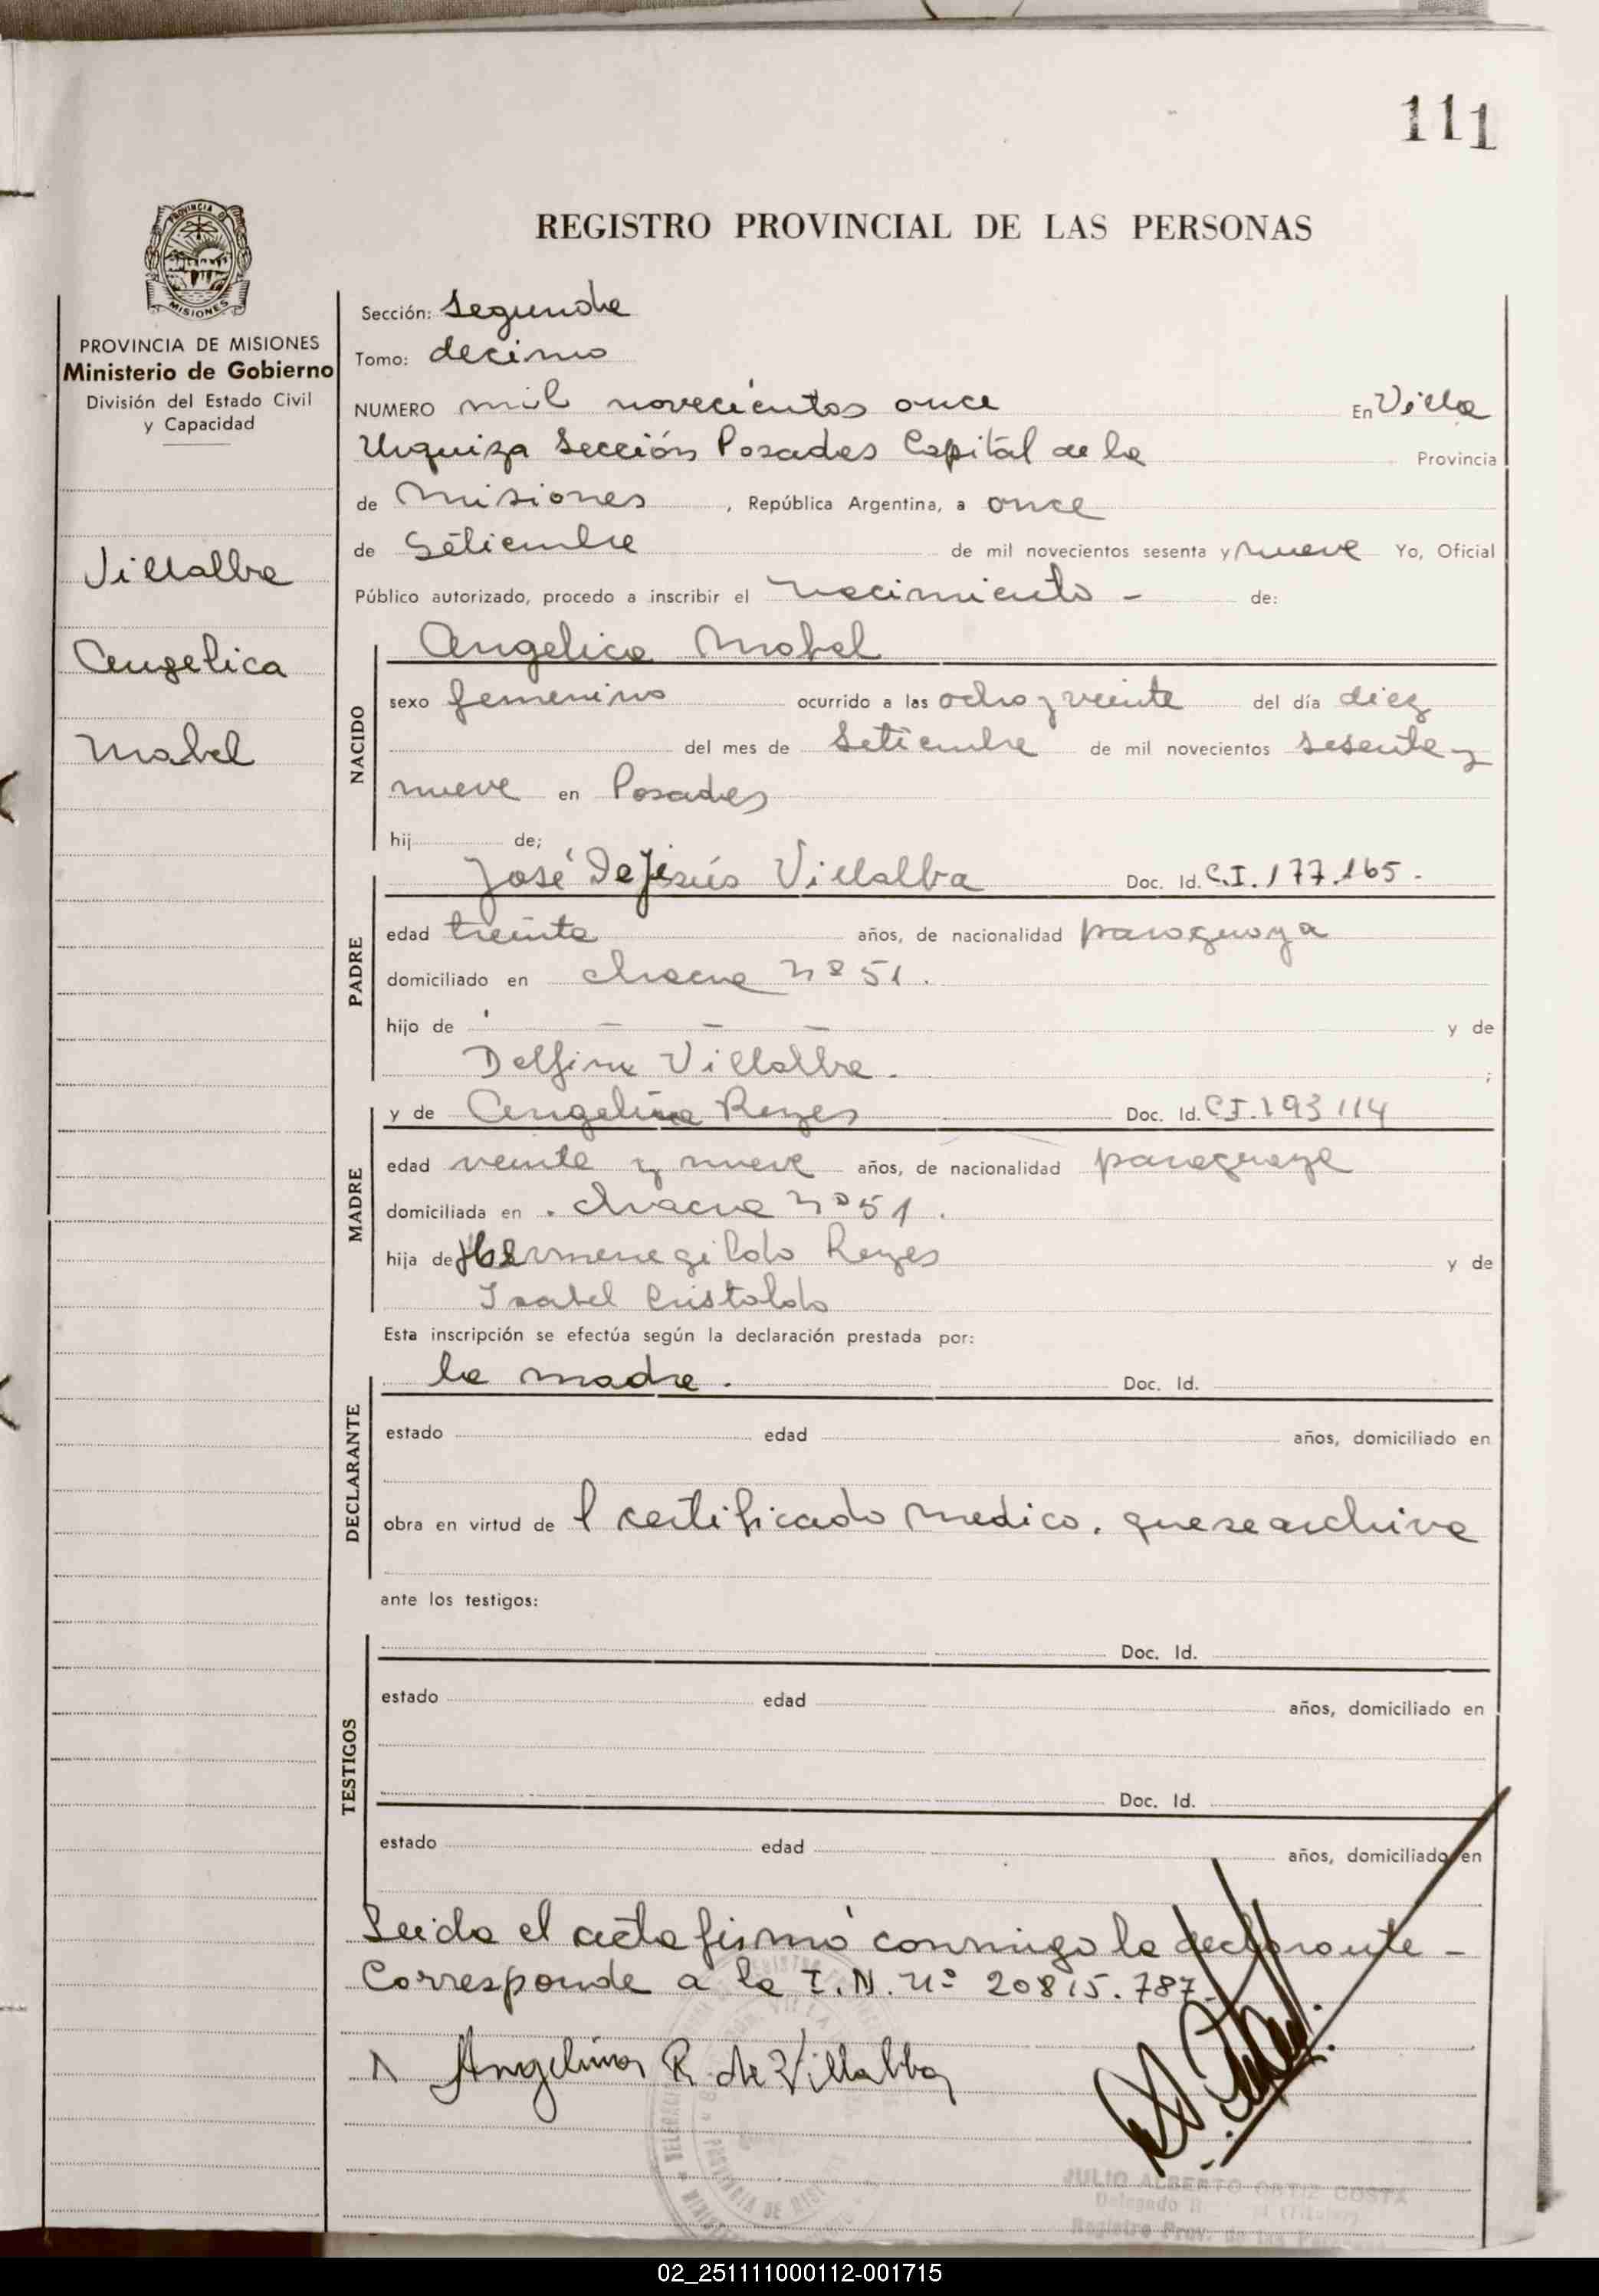 111
REGISTRO PROVINCIAL DE LAS PERSONAS
PROVINCIA DE
MISIONES
PROVINCIA DE MISIONES
Ministerio de Gobierno
División del Estado Civil
y Capacidad
Villalba
Angelica
Mabel
Sección: Segunda
Tomo: decimo
NUMERO mil novecientos once En Villa
Urquiza Sección Posadas Capital de la Provincia
de Misiones, República Argentina, a once
de Setiembre de mil novecientos sesenta y nueve Yo, Oficial
Público autorizado, procedo a inscribir el nacimiento - de:
NACIDO
Angelica Mabel
sexo femenino ocurrido a las ocho y veinte del día diez
del mes de Setiembre de mil novecientos sesenta y
nueve en Posadas
hij de;
PADRE
José De Jesús Villalba Doc. Id. C.I. 177.165.
edad treinta años, de nacionalidad paraguaya
domiciliado en chacra nº 51.
hijo de - - - y de
Delfina Villalba. ;
MADRE
y de Angelina Reyes Doc. Id. CI. 193 114
edad veinte y nueve años, de nacionalidad paraguaya
domiciliada en . chacra nº 51.
hija de Hermenegildo Reyes y de
Isabel Cristaldo
Esta inscripción se efectúa según la declaración prestada por:
DECLARANTE
la madre. Doc. Id.
estado edad años, domiciliado en
obra en virtud de l certificado medico. que se archiva
ante los testigos:
TESTIGOS
Doc. Id.
estado edad años, domiciliado en
Doc. Id.
estado edad años, domiciliado en
Leida el acta firmó conmigo la declarante -
Corresponde a la I.N. nº 20815.787.
Angelina R. de Villalba
JULIO ALBERTO ORTIZ COSTA
Delegado (Titular)
Registro Prov. de las
02_251111000112-001715